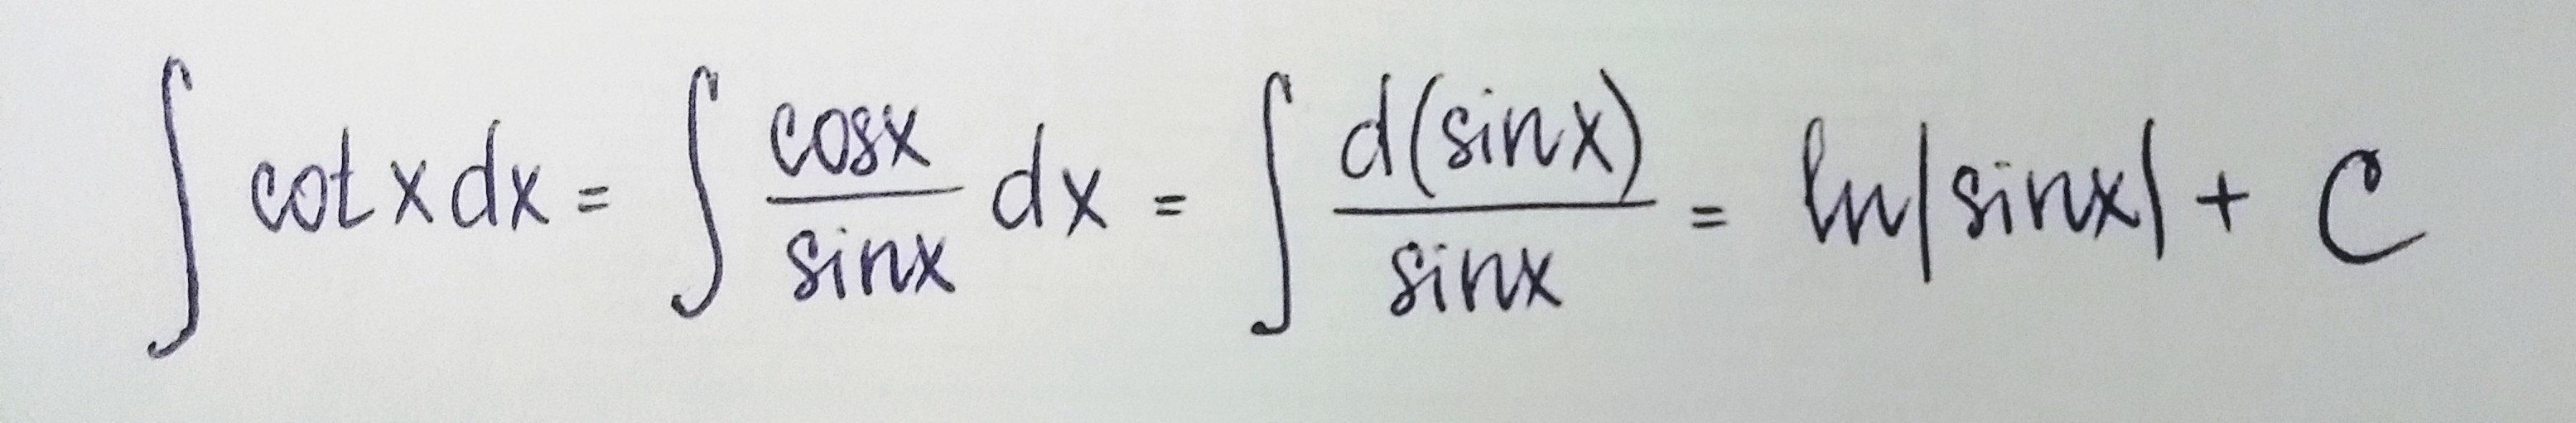 ∫ cot x dx = ∫ cosx/sinx dx = ∫ d(sinx)/sinx = ln|sinx| + C